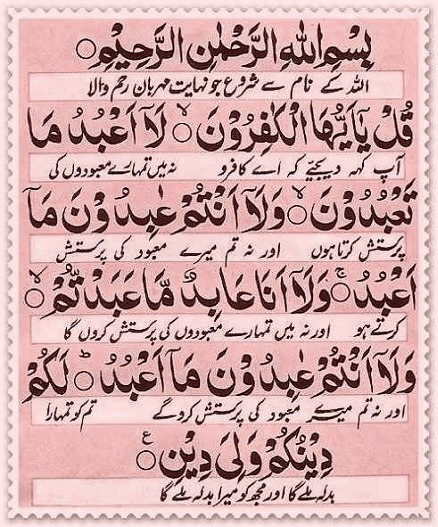 بِسْمِ اللهِ الرَّحْمٰنِ الرَّحِيْمِ ○
اللہ کے نام سے شروع جو نہایت مہربان رحم والا
قُلْ يٰٓاَيُّهَا الْكٰفِرُوْنَ ○ۙ لَآ اَعْبُدُ مَا
آپ کہہ دیجیے کہ اے کافرو نہ میں تمہارے معبودوں کی
تَعْبُدُوْنَ ○ۙ وَلَآ اَنْتُمْ عٰبِدُوْنَ مَآ
پرستش کرتا ہوں اور نہ تم میرے معبود کی پرستش
اَعْبُدُ ○ۚ وَلَآ اَنَا عَابِدٌ مَّا عَبَدْتُّمْ ○ۙ
کرتے ہو اور نہ میں تمہارے معبودوں کی پرستش کروں گا
وَلَآ اَنْتُمْ عٰبِدُوْنَ مَآ اَعْبُدُ ○ؕ لَكُمْ
اور نہ تم میرے معبود کی پرستش کرو گے تم کو تمہارا
دِيْنُكُمْ وَلِيَ دِيْنِ ○ع
بدلہ ملے گا اور مجھ کو میرا بدلہ ملے گا